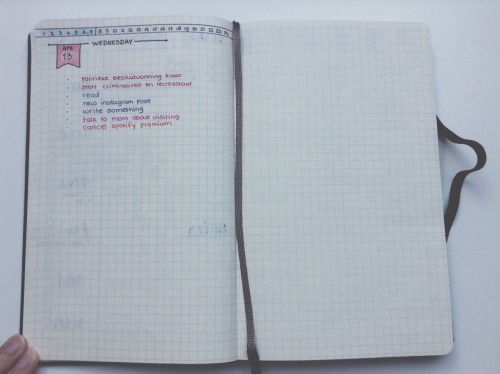 1 2 3 4 5 6 7 8 9 10 11 12 13 14 15 16 17 18 19 20 21 22 23 24
WEDNESDAY
APR
13
politieke besluitvorming klaar
start criminaliteit en rechtsstaat
read
new instagram post
write something
talk to mom about visiting
cancel spotify premium